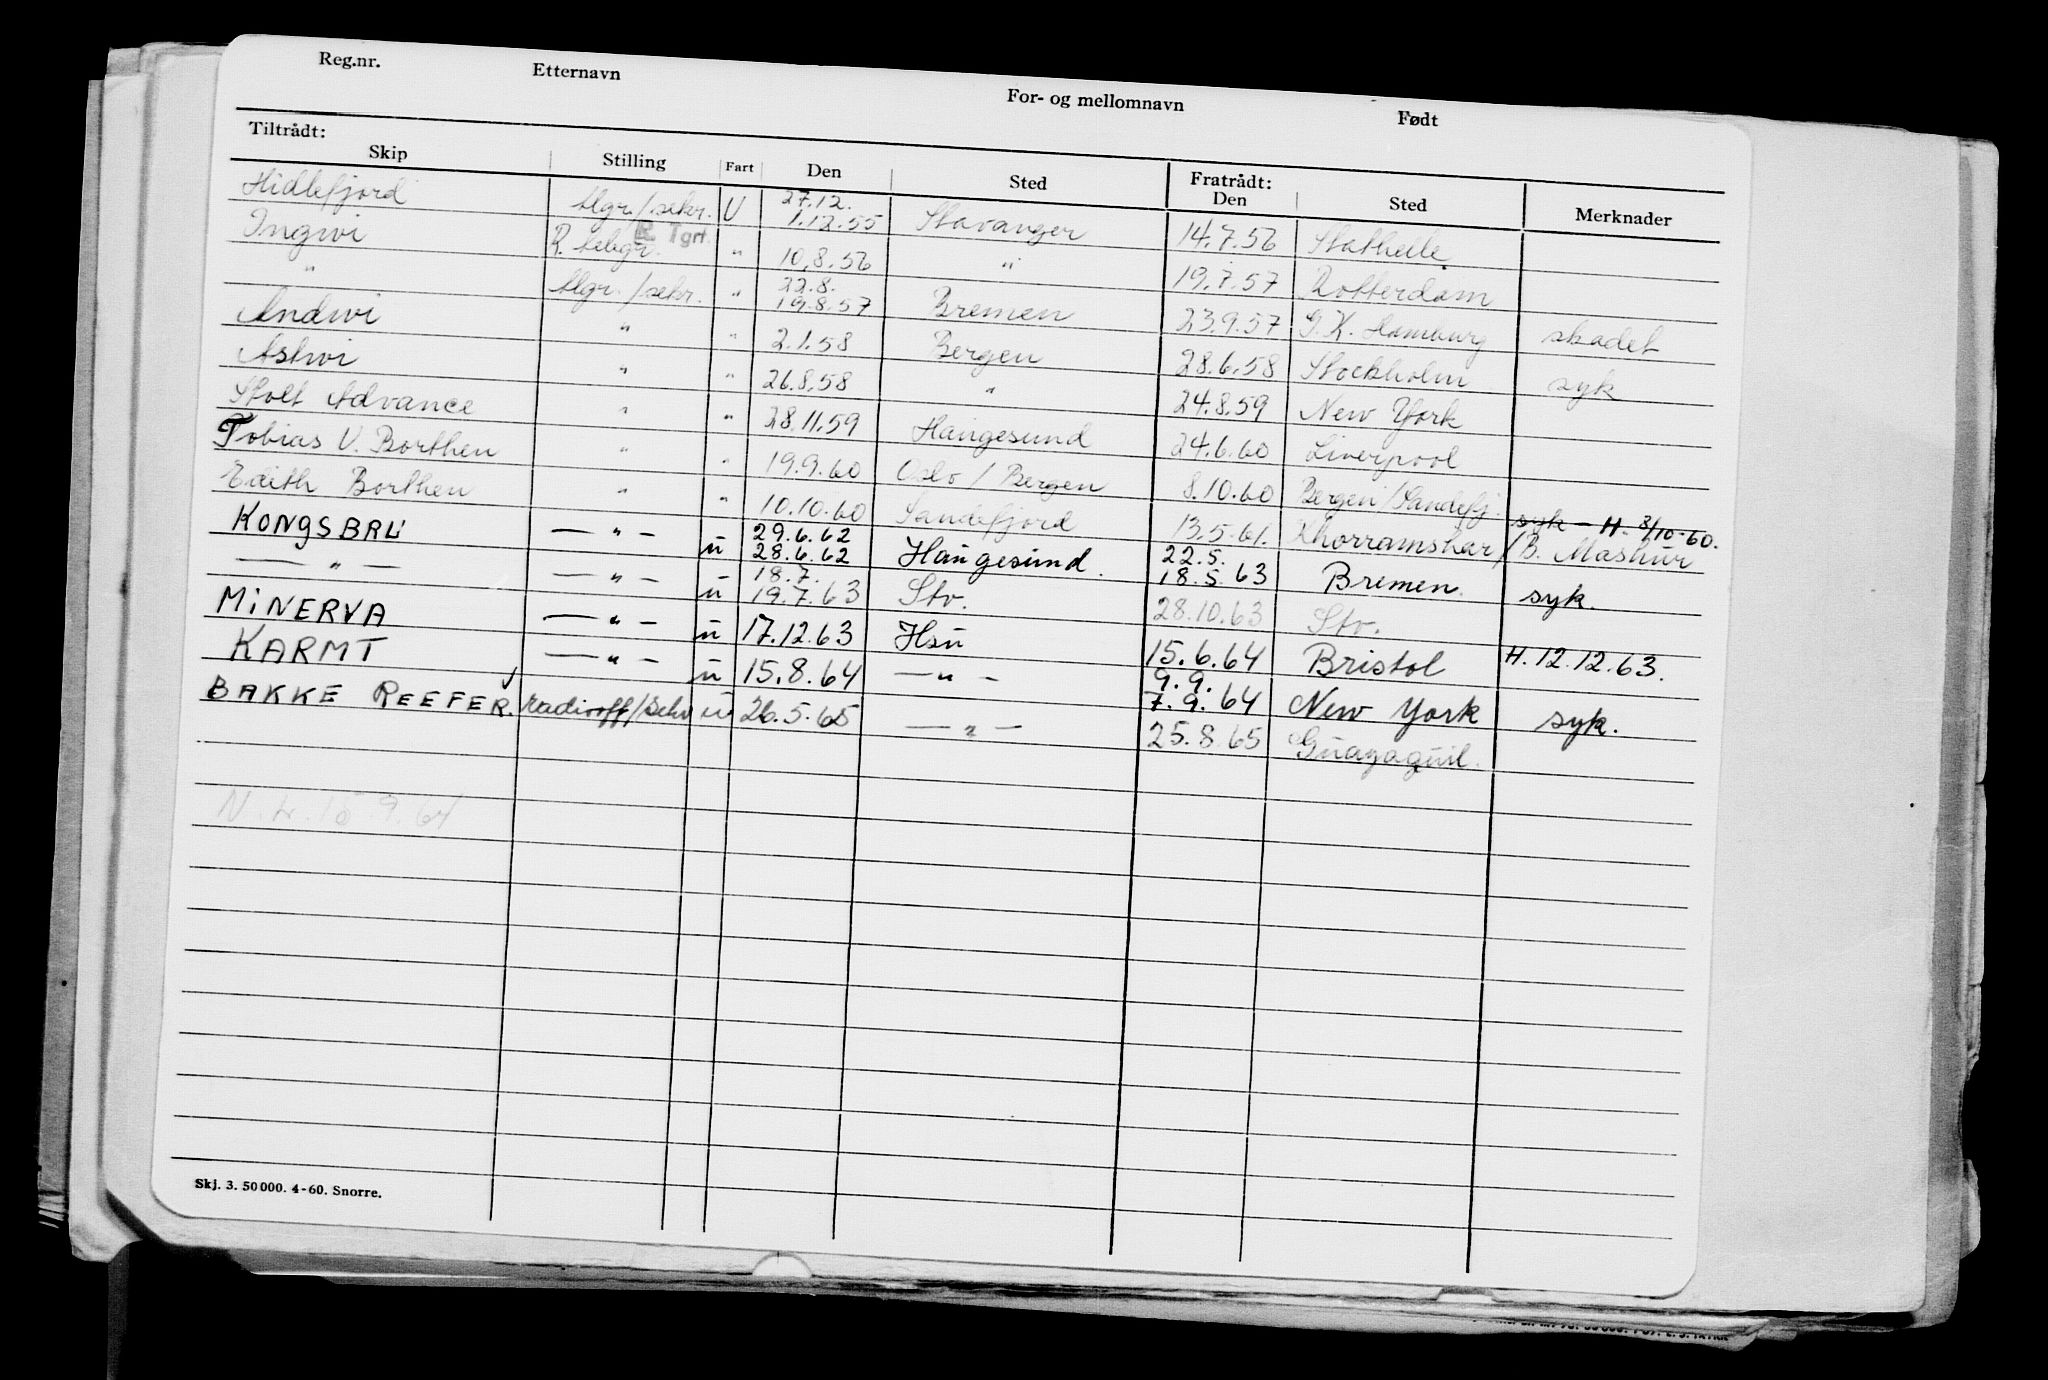 Reg.nr. Etternavn For- og mellomnavn Født
Tiltrådt: Fratrådt:
Skip Stilling Fart Den Sted Den Sted Merknader
Hidlefjord tlgr./sekr. U 27.12. 1.12.55 Stavanger 14.7.56 Stathelle
Ingwi R. telegr. R Tgrf. " 10.8.56 " 19.7.57 Rotterdam
" tlgr./sekr. " 22.8. 19.8.57 Bremen 23.9.57 G.K. Hamburg skadet
Andwi " " 2.1.58 Bergen 28.6.58 Stockholm syk
Askwi " " 26.8.58 " 24.8.59 New York
Stolt Advance " " 28.11.59 Haugesund 24.6.60 Liverpool
Tobias U. Borthen " " 19.9.60 Oslo / Bergen 8.10.60 Bergen/Sandefj. syk – H. 8/10-60.
Edith Borthen " " 10.10.60 Sandefjord 13.5.61. Khorramshar/B. Mashur
KONGSBRU — " — u 29.6.62 28.6.62 Haugesund. 22.5. 18.5.63 Bremen. syk.
— " — — " — u 18.7. 19.7.63 Stv. 28.10.63 Stv.
MINERVA — " — u 17.12.63 Hsu 15.6.64 Bristol H. 12.12.63.
KARMT — " — u 15.8.64 — " — 9.9. 7.9.64 New York syk.
BAKKE REEFER. radiooff/sekr u 26.5.65 — " — 25.8.65 Guayaquil.
Skj. 3. 50 000. 4-60. Snorre.